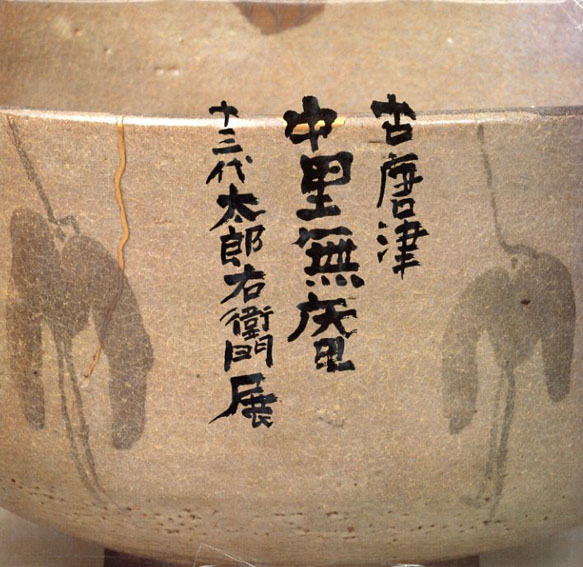 古唐津
中里無庵
十三代太郎右衛門展